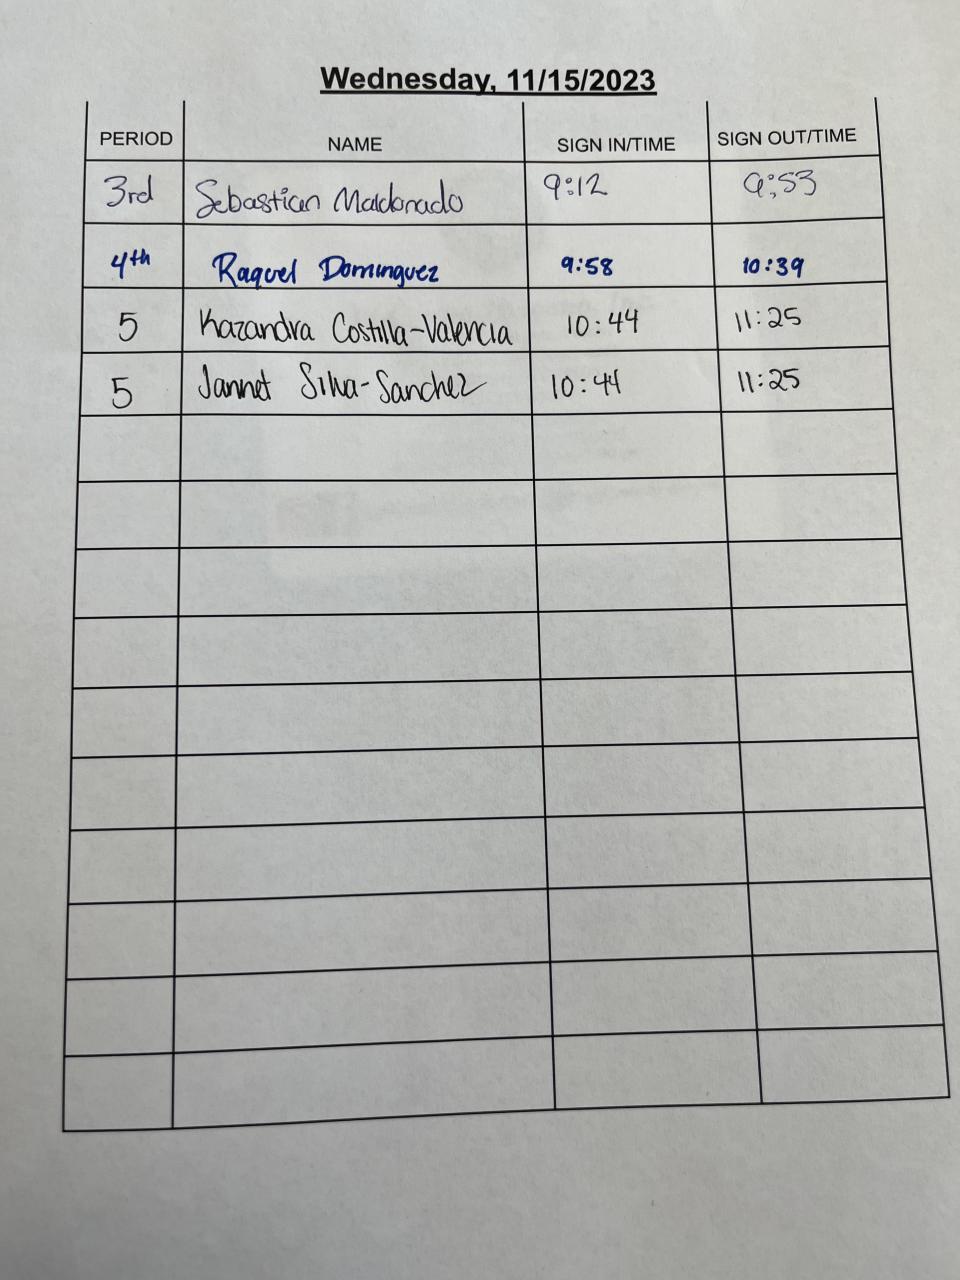 Wednesday, 11/15/2023
PERIOD NAME SIGN IN/TIME SIGN OUT/TIME
3rd Sebastian Maldonado 9:12 9:53
4th Raquel Dominguez 9:58 10:39
5 Kazandra Costilla-Valencia 10:44 11:25
5 Jannet Silva-Sanchez 10:44 11:25